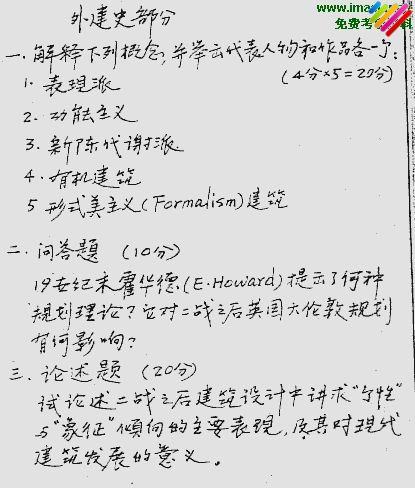 www.ima
免费考 科
外建史部分
一.解释下列概念,并举出代表人物和作品各一个:
(4分×5=20分)
1. 表现派
2. 功能主义
3. 新陈代谢派
4. 有机建筑
5 形式美主义(Formalism)建筑
二.问答题 (10分)
19世纪末霍华德(E.Howard)提示了何种
规划理论?它对二战之后英国大伦敦规划
有何影响?
三.论述题 (20分)
试论述二战之后建筑设计中讲求"个性"
与"象征"倾向的主要表现,及其对现代
建筑发展的意义。